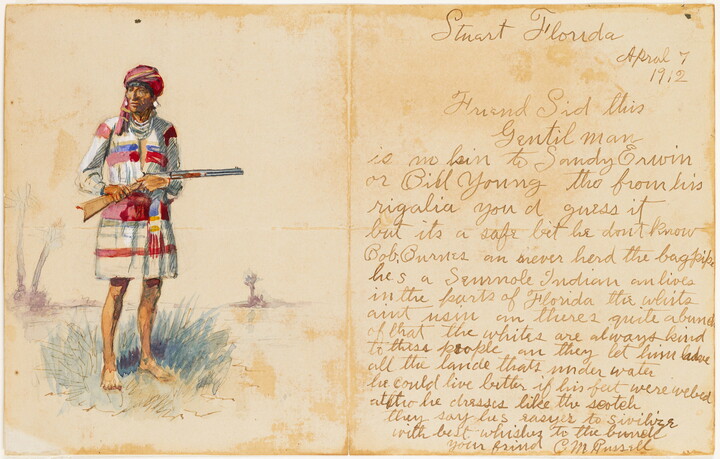 Stuart Florida
Apral 7
1912
Friend Sid this
Gentil man
is no kin to Sandy Erwin
or Bill Young tho from his
rigalia you d guess it
but its a safe bit he dont know
Bob Burnes an never herd the bagpip
hes a Semnole Indian an lives
in the parts of Florida the whits
aint usin an theres quite a bunch
of that the whites are always kind
to these people an they let him have
all the lande thats under water
he could live better if his feet were webed
altho he dresses like the scotch
they say hes easyer to sivilize
with best whishes to the bunch
your frind C M Russell